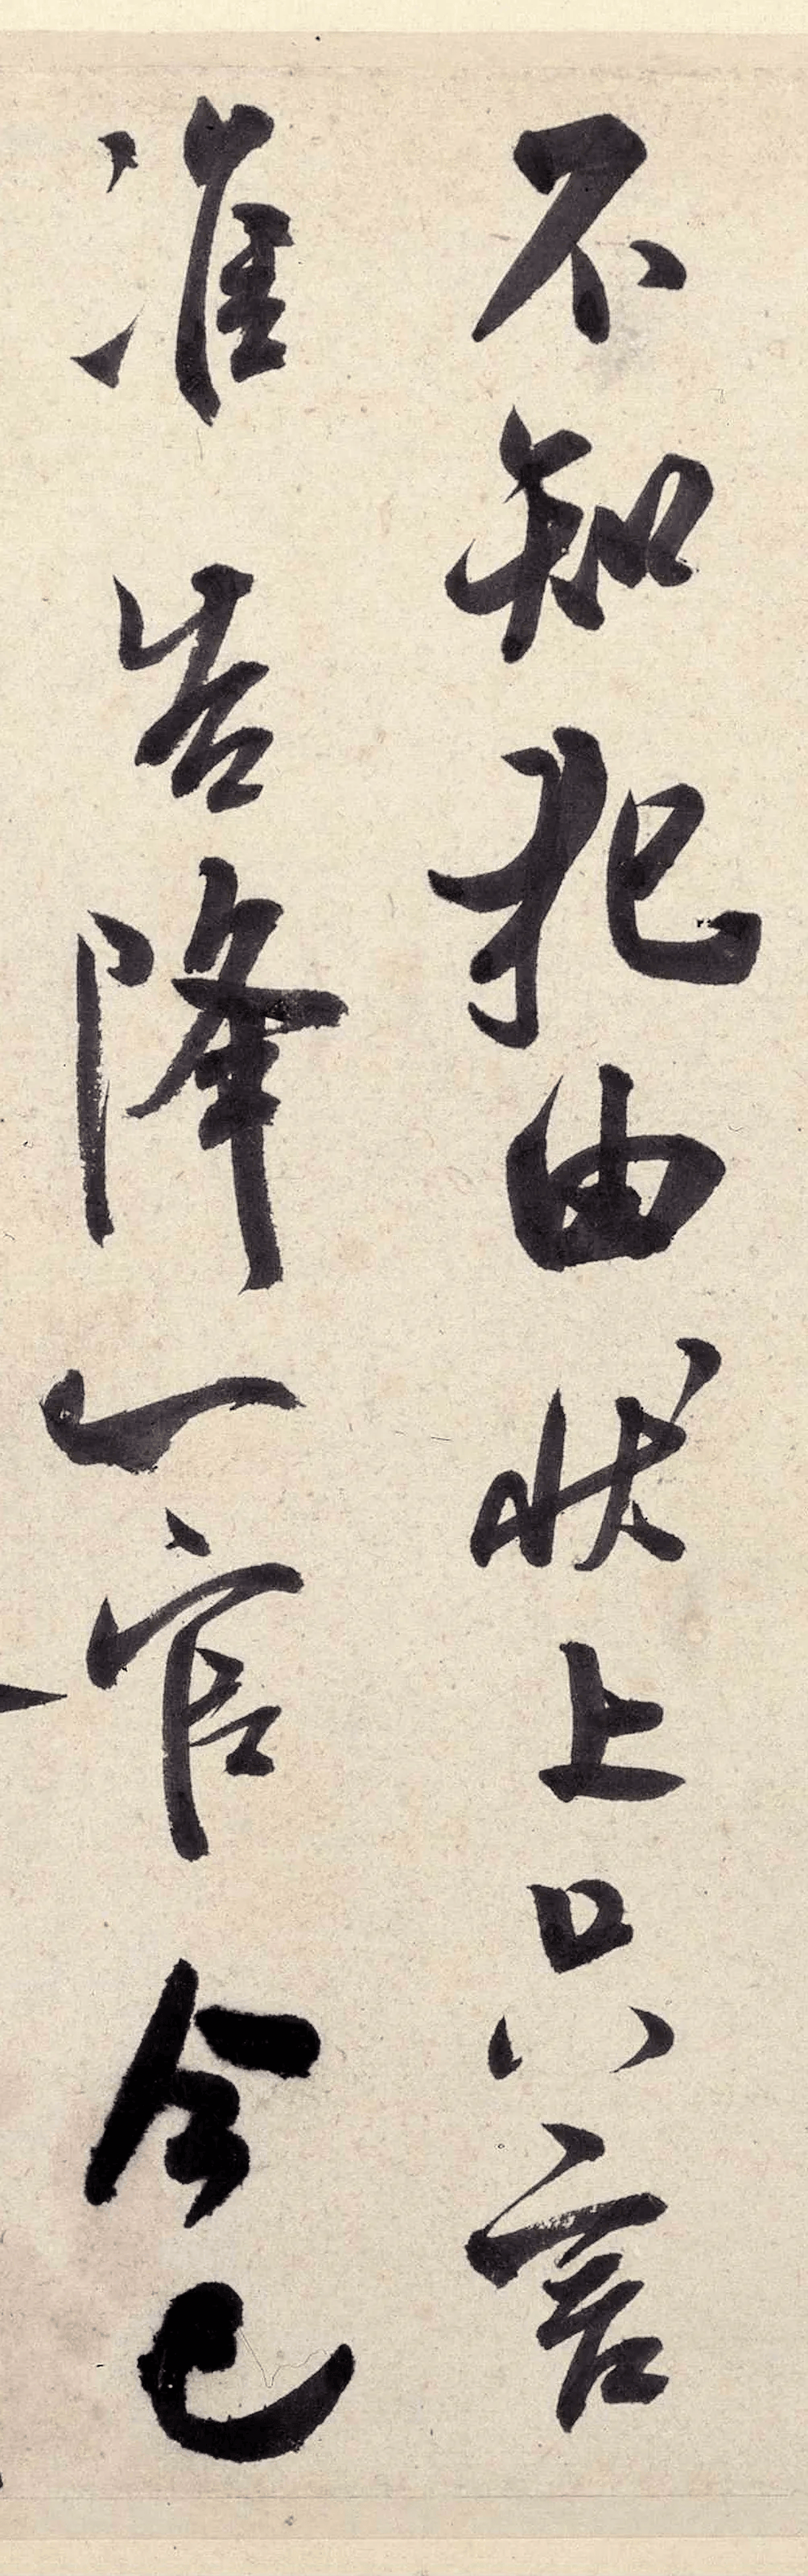 不知犯由状上只言
准告降一官今已